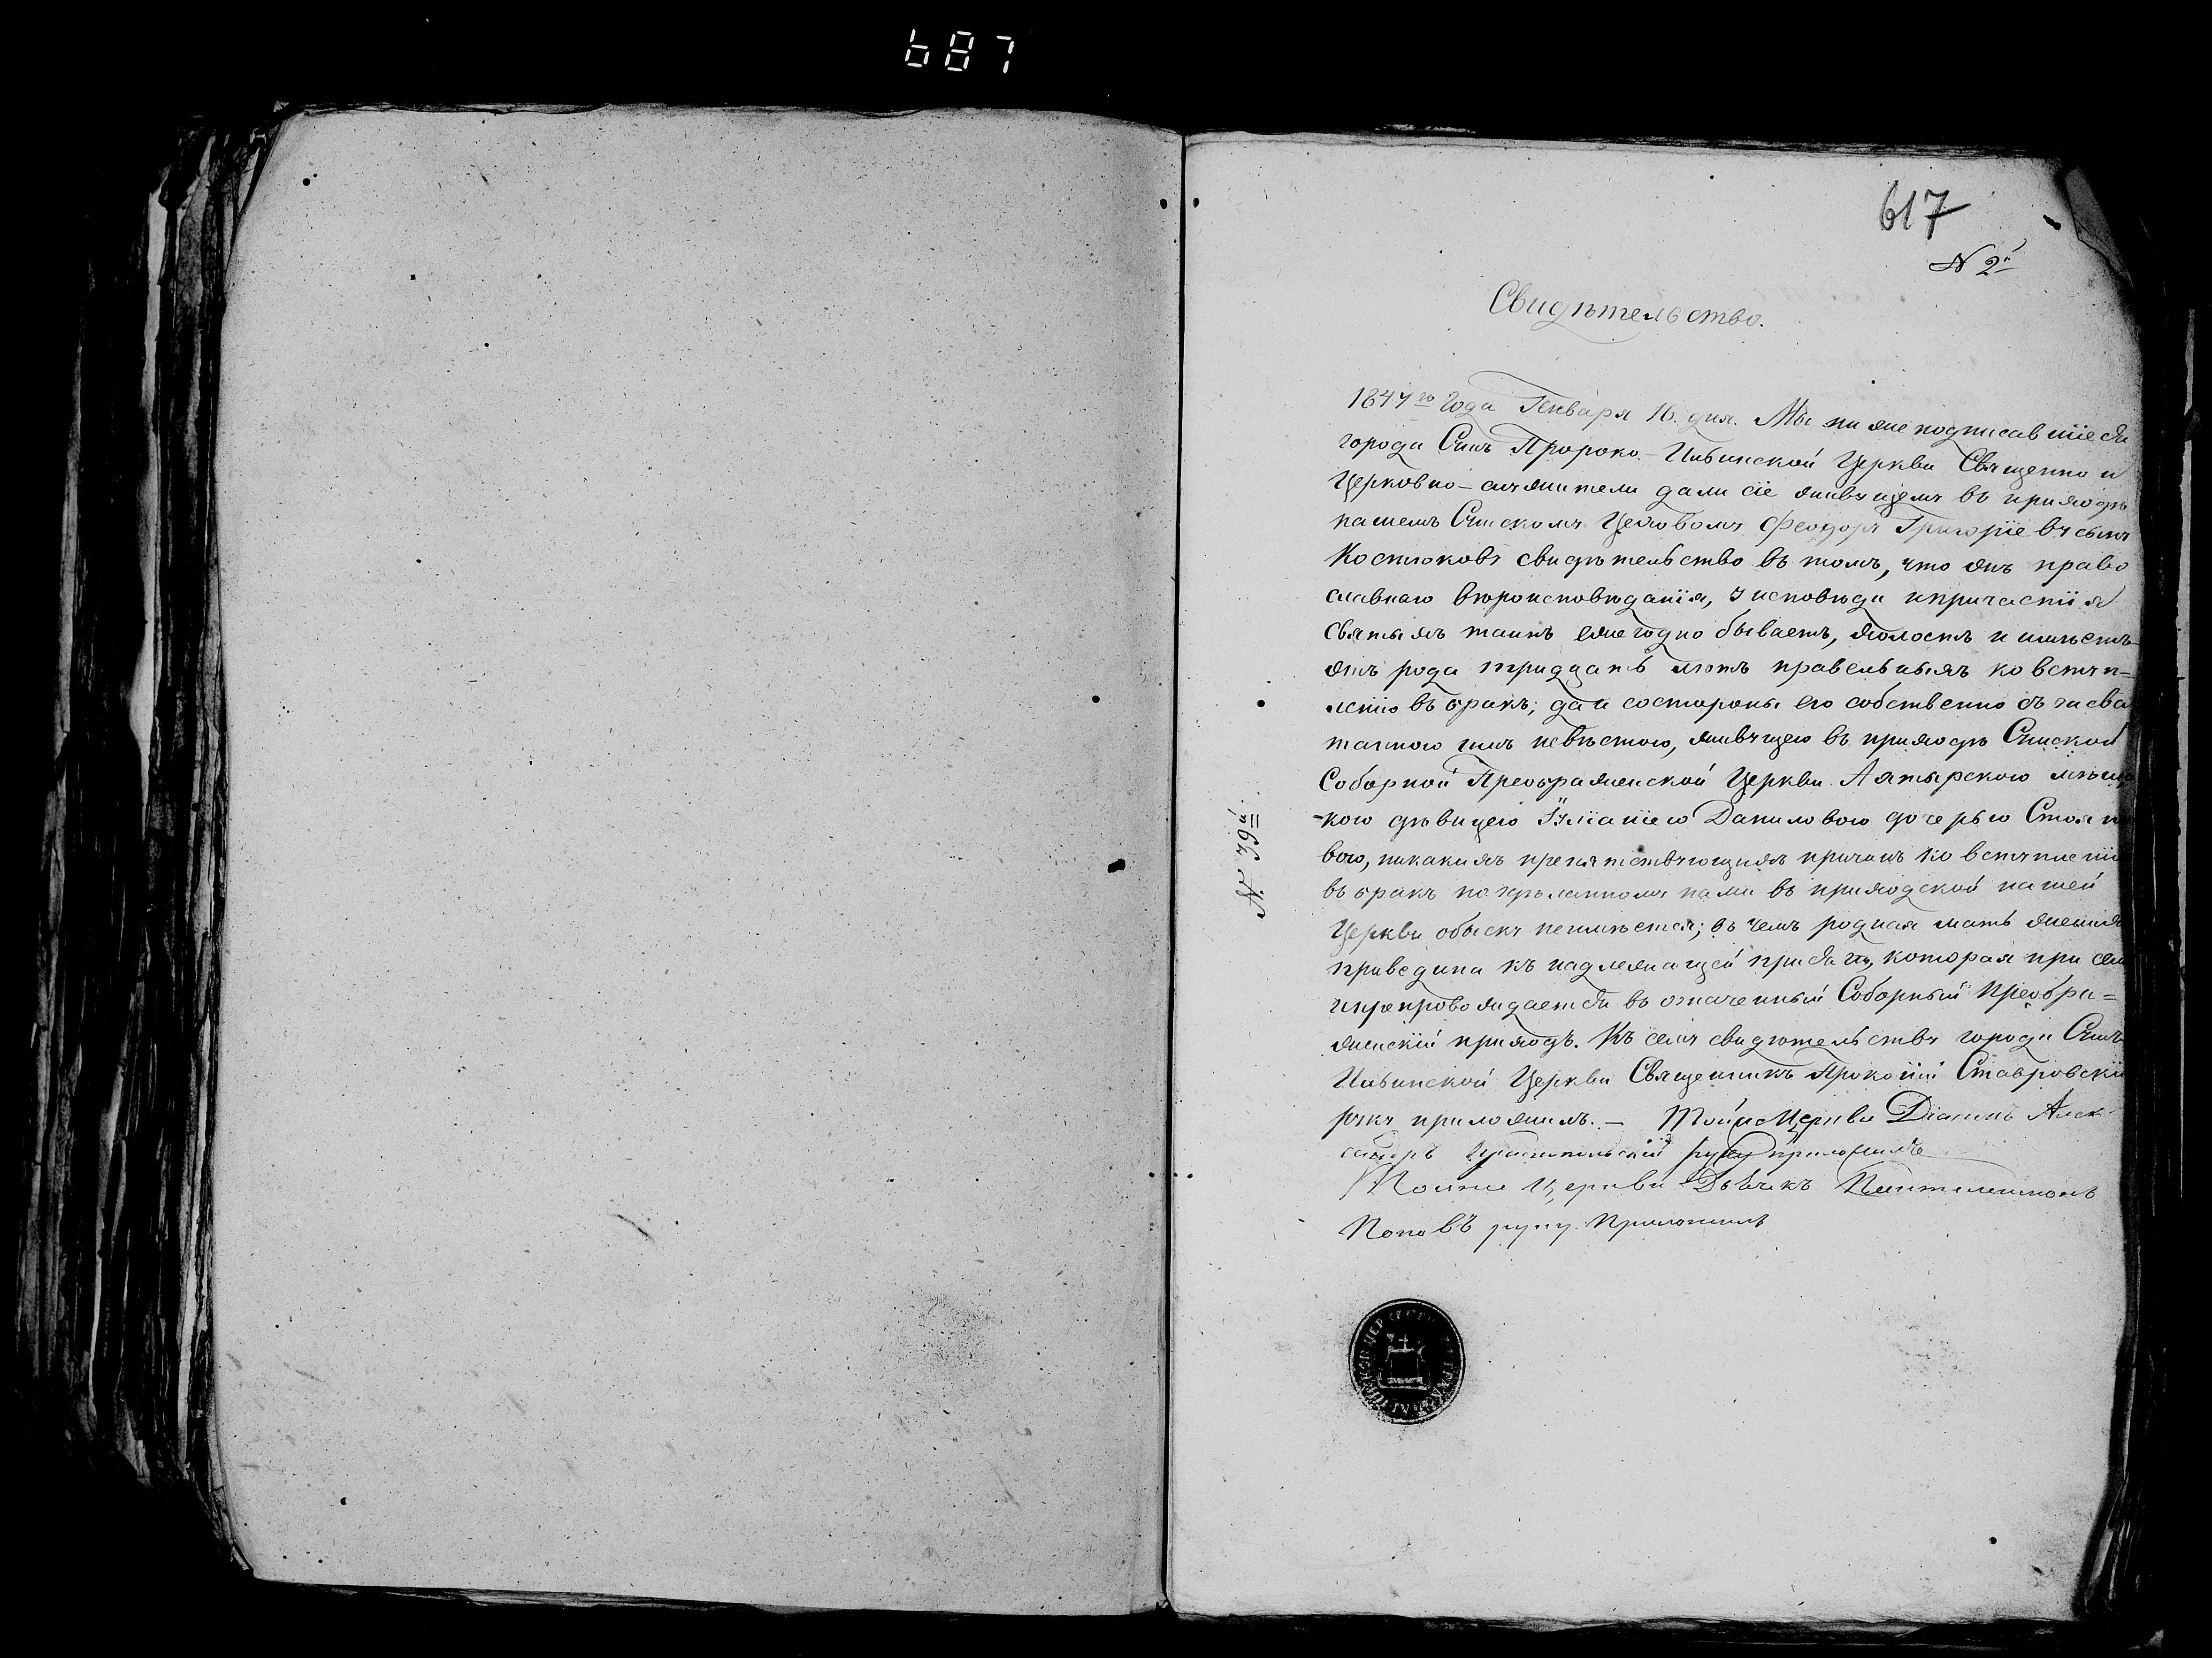 687
617
N 2й
Свидѣтельство.
1847го Года Генваря 16. дня. Мы ниже подписавшіеся
города Сумъ Пророко-Ильинской Церкви Священно и
Церковно-служители дали сіе живущему въ приходѣ
нашемъ Сумскому Цеховому Феодору Григоріеву сыну
Костюкову свидѣтельство въ томъ, что онъ право
славнаго вѣроисповѣданія, у исповѣди и причастія
святыхъ таинъ ежегодно бываетъ, холостъ и имѣетъ
отъ рода тридцать лѣтъ правельныхъ ко вступ=
ленію въ бракъ; да и состороны его собственно съ засва
танною имъ невѣстою, живущею въ приходѣ Сумской
Соборной Преображенской Церкви Ахтырского мѣща
-кою дѣвицею Іуліаніею Даниловою дочерью Стоя
вою, никакихъ препятствующихъ причинъ ко вступленію
въ бракъ по учрѣжденному нами въ приходской нашей
Церкви обыску неимѣется; въ чемъ родная мать жениха
приведина къ надлежащей присягѣ, которая при семъ
и препровождается въ означенный Соборный Преобра=
женскій приходъ. Къ сему свидѣтельству города Сумъ
Ильинской Церкви Священникъ Прокопій Ставровскій
руку приложилъ. — Тойже Церкви Діаконъ Алек-
сандръ руку приложилъ
Тойже Церкви Дьячекъ Пантелеимонъ
Поповъ руку приложилъ
№ 39й.